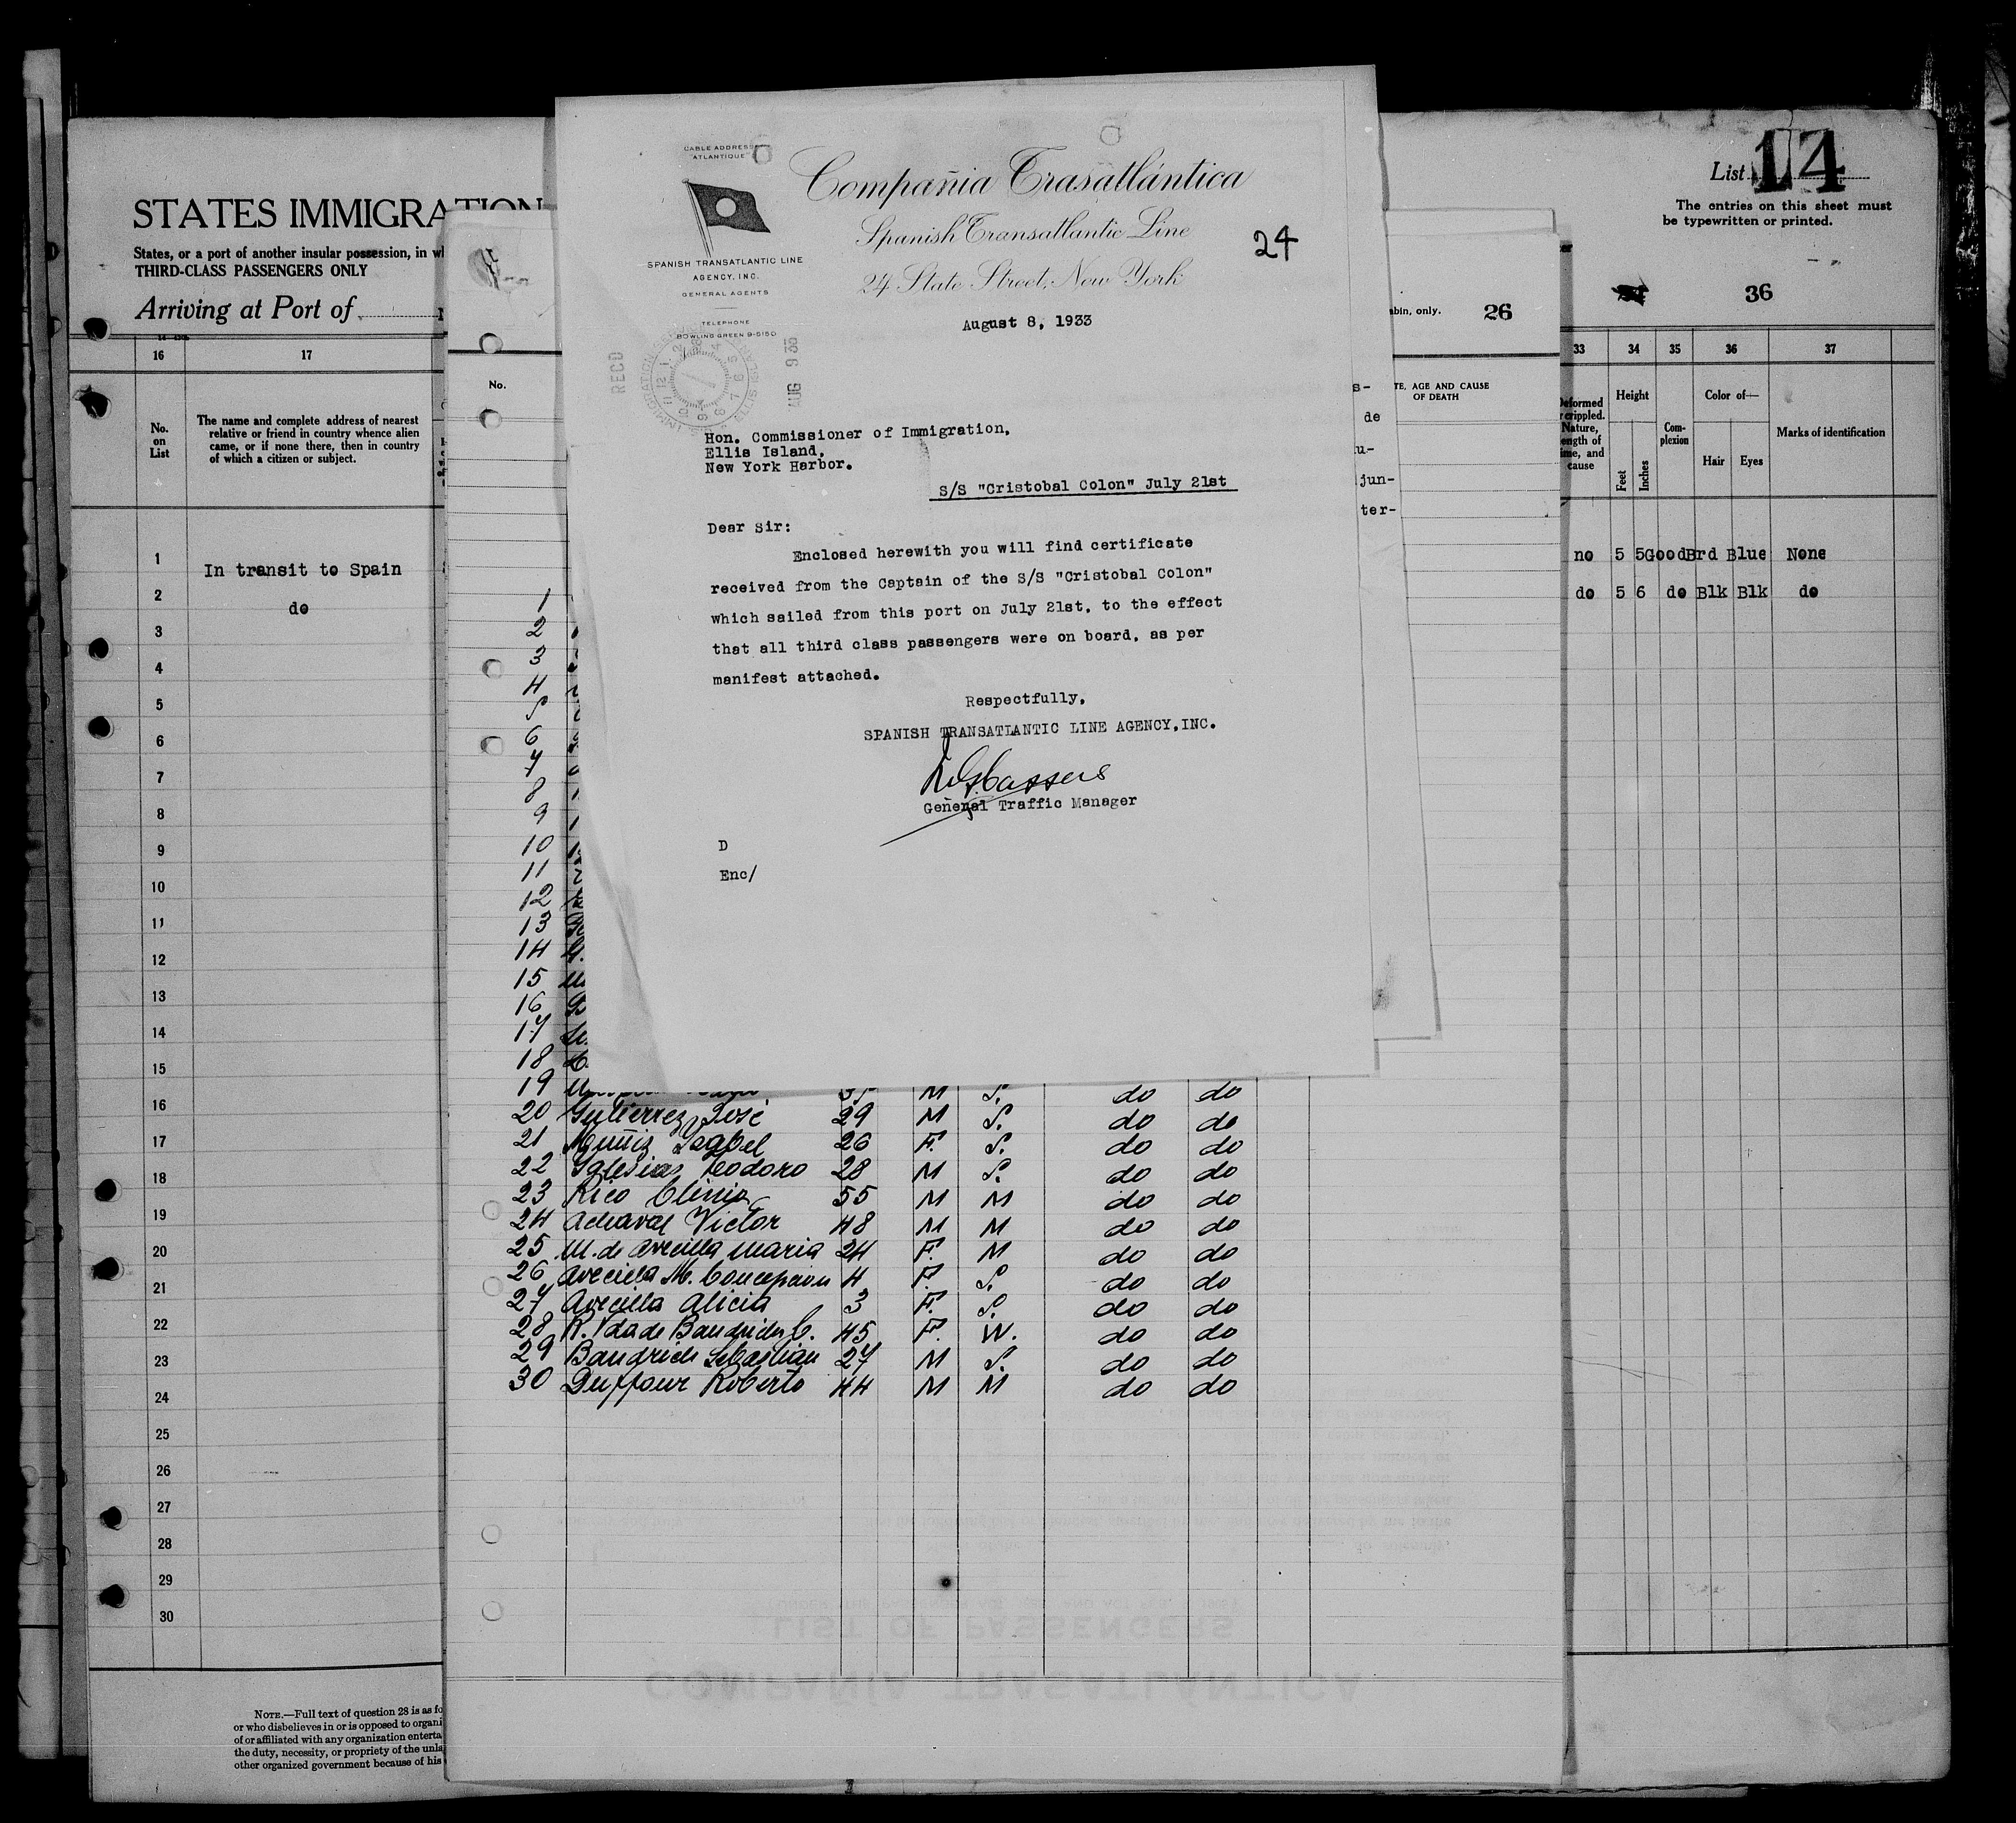 STATES IMMIGRATION
States, or a port of another insular possession, in wh
THIRD-CLASS PASSENGERS ONLY
Arriving at Port of
16 17
No. on List
The name and complete address of nearest
relative or friend in country whence alien
came, or if none there, then in country
of which a citizen or subject.
1 In transit to Spain
2 do
3
4
5
6
7
8
9
10
11
12
13
14
15
16
17
18
19
20
21
22
23
24
25
26
27
28
29
30
NOTE.—Full text of question 28 is as fo
or who disbelieves in or is opposed to organi
of or affiliated with any organization enterta
the duty, necessity, or propriety of the unla
other organized government because of his
CABLE ADDRESS
"ATLANTIQUE"
Compañia Trasatlántica
Spanish Transatlantic Line
24 State Street, New York
24
SPANISH TRANSATLANTIC LINE
AGENCY, INC.
GENERAL AGENTS
TELEPHONE
BOWLING GREEN 9-5150
August 8, 1933
RECD
AUG 9 33
Hon. Commissioner of Immigration,
Ellis Island,
New York Harbor.
S/S "Cristobal Colon" July 21st
Dear Sir:
Enclosed herewith you will find certificate
received from the Captain of the S/S "Cristobal Colon"
which sailed from this port on July 21st, to the effect
that all third class passengers were on board, as per
manifest attached.
Respectfully,
SPANISH TRANSATLANTIC LINE AGENCY,INC.
General Traffic Manager
D
Enc/
s-
de
u-
jun-
ter-
abin, only. 26
TE, AGE AND CAUSE
OF DEATH
No.
1
2
3
4
5
6
7
8
9
10
11
12
13
14
15
16
17
18
19 M S. do do
20 Gutierrez José 29 M S. do do
21 Muñiz Isabel 26 F. S. do do
22 Iglesias Teodoro 28 M S. do do
23 Rico Clinio 55 M M do do
24 Acharal Victor 48 M M do do
25 M. de Avecilla Maria 24 F. M do do
26 Avecilla M. Concepcion 4 F. S. do do
27 Avecilla Alicia 3 F. S. do do
28 R. Vda de Baudrich C. 45 F. W. do do
29 Baudrich Sebastian 27 M S. do do
30 Duffour Roberto 44 M M do do
LIST OF PASSENGERS
COMPAÑÍA TRASATLÁNTICA
List 14
The entries on this sheet must
be typewritten or printed.
36
33 34 35 36 37
Deformed
or crippled.
Nature,
length of
time, and
cause
Height
Feet Inches
Com-
plexion
Color of—
Hair Eyes
Marks of identification
no 5 5 Good Brd Blue None
do 5 6 do Blk Blk do